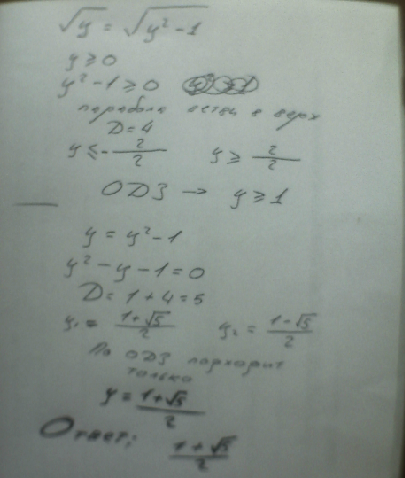 √y = √y²-1
y ≥ 0
y²-1 ≥ 0
парабола ветви в верх
D = 4
y ≤ - 2/2 y ≥ 2/2
ОДЗ → y ≥ 1
y = y²-1
y² - y - 1 = 0
D = 1 + 4 = 5
y₁ = 1+√5/2 y₂ = 1-√5/2
По ОДЗ подходит
только
y = 1+√5/2
Ответ: 1+√5/2